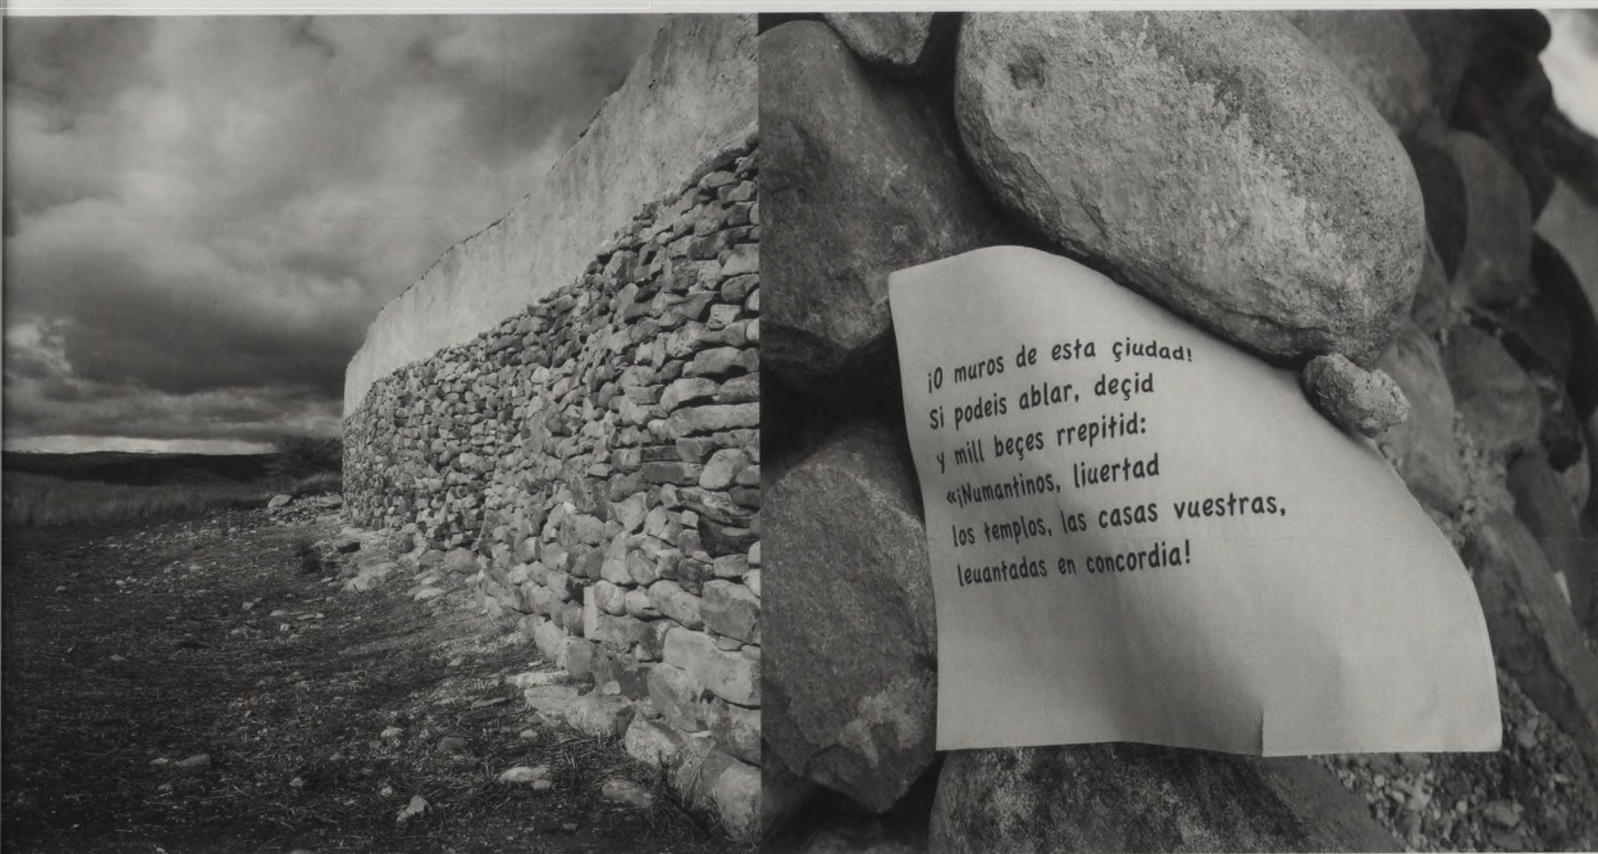 ¡O muros de esta çiudad!
Si podeis ablar, deçid
y mill beçes rrepitid:
«¡Numantinos, liuertad
los templos, las casas vuestras,
leuantadas en concordia!